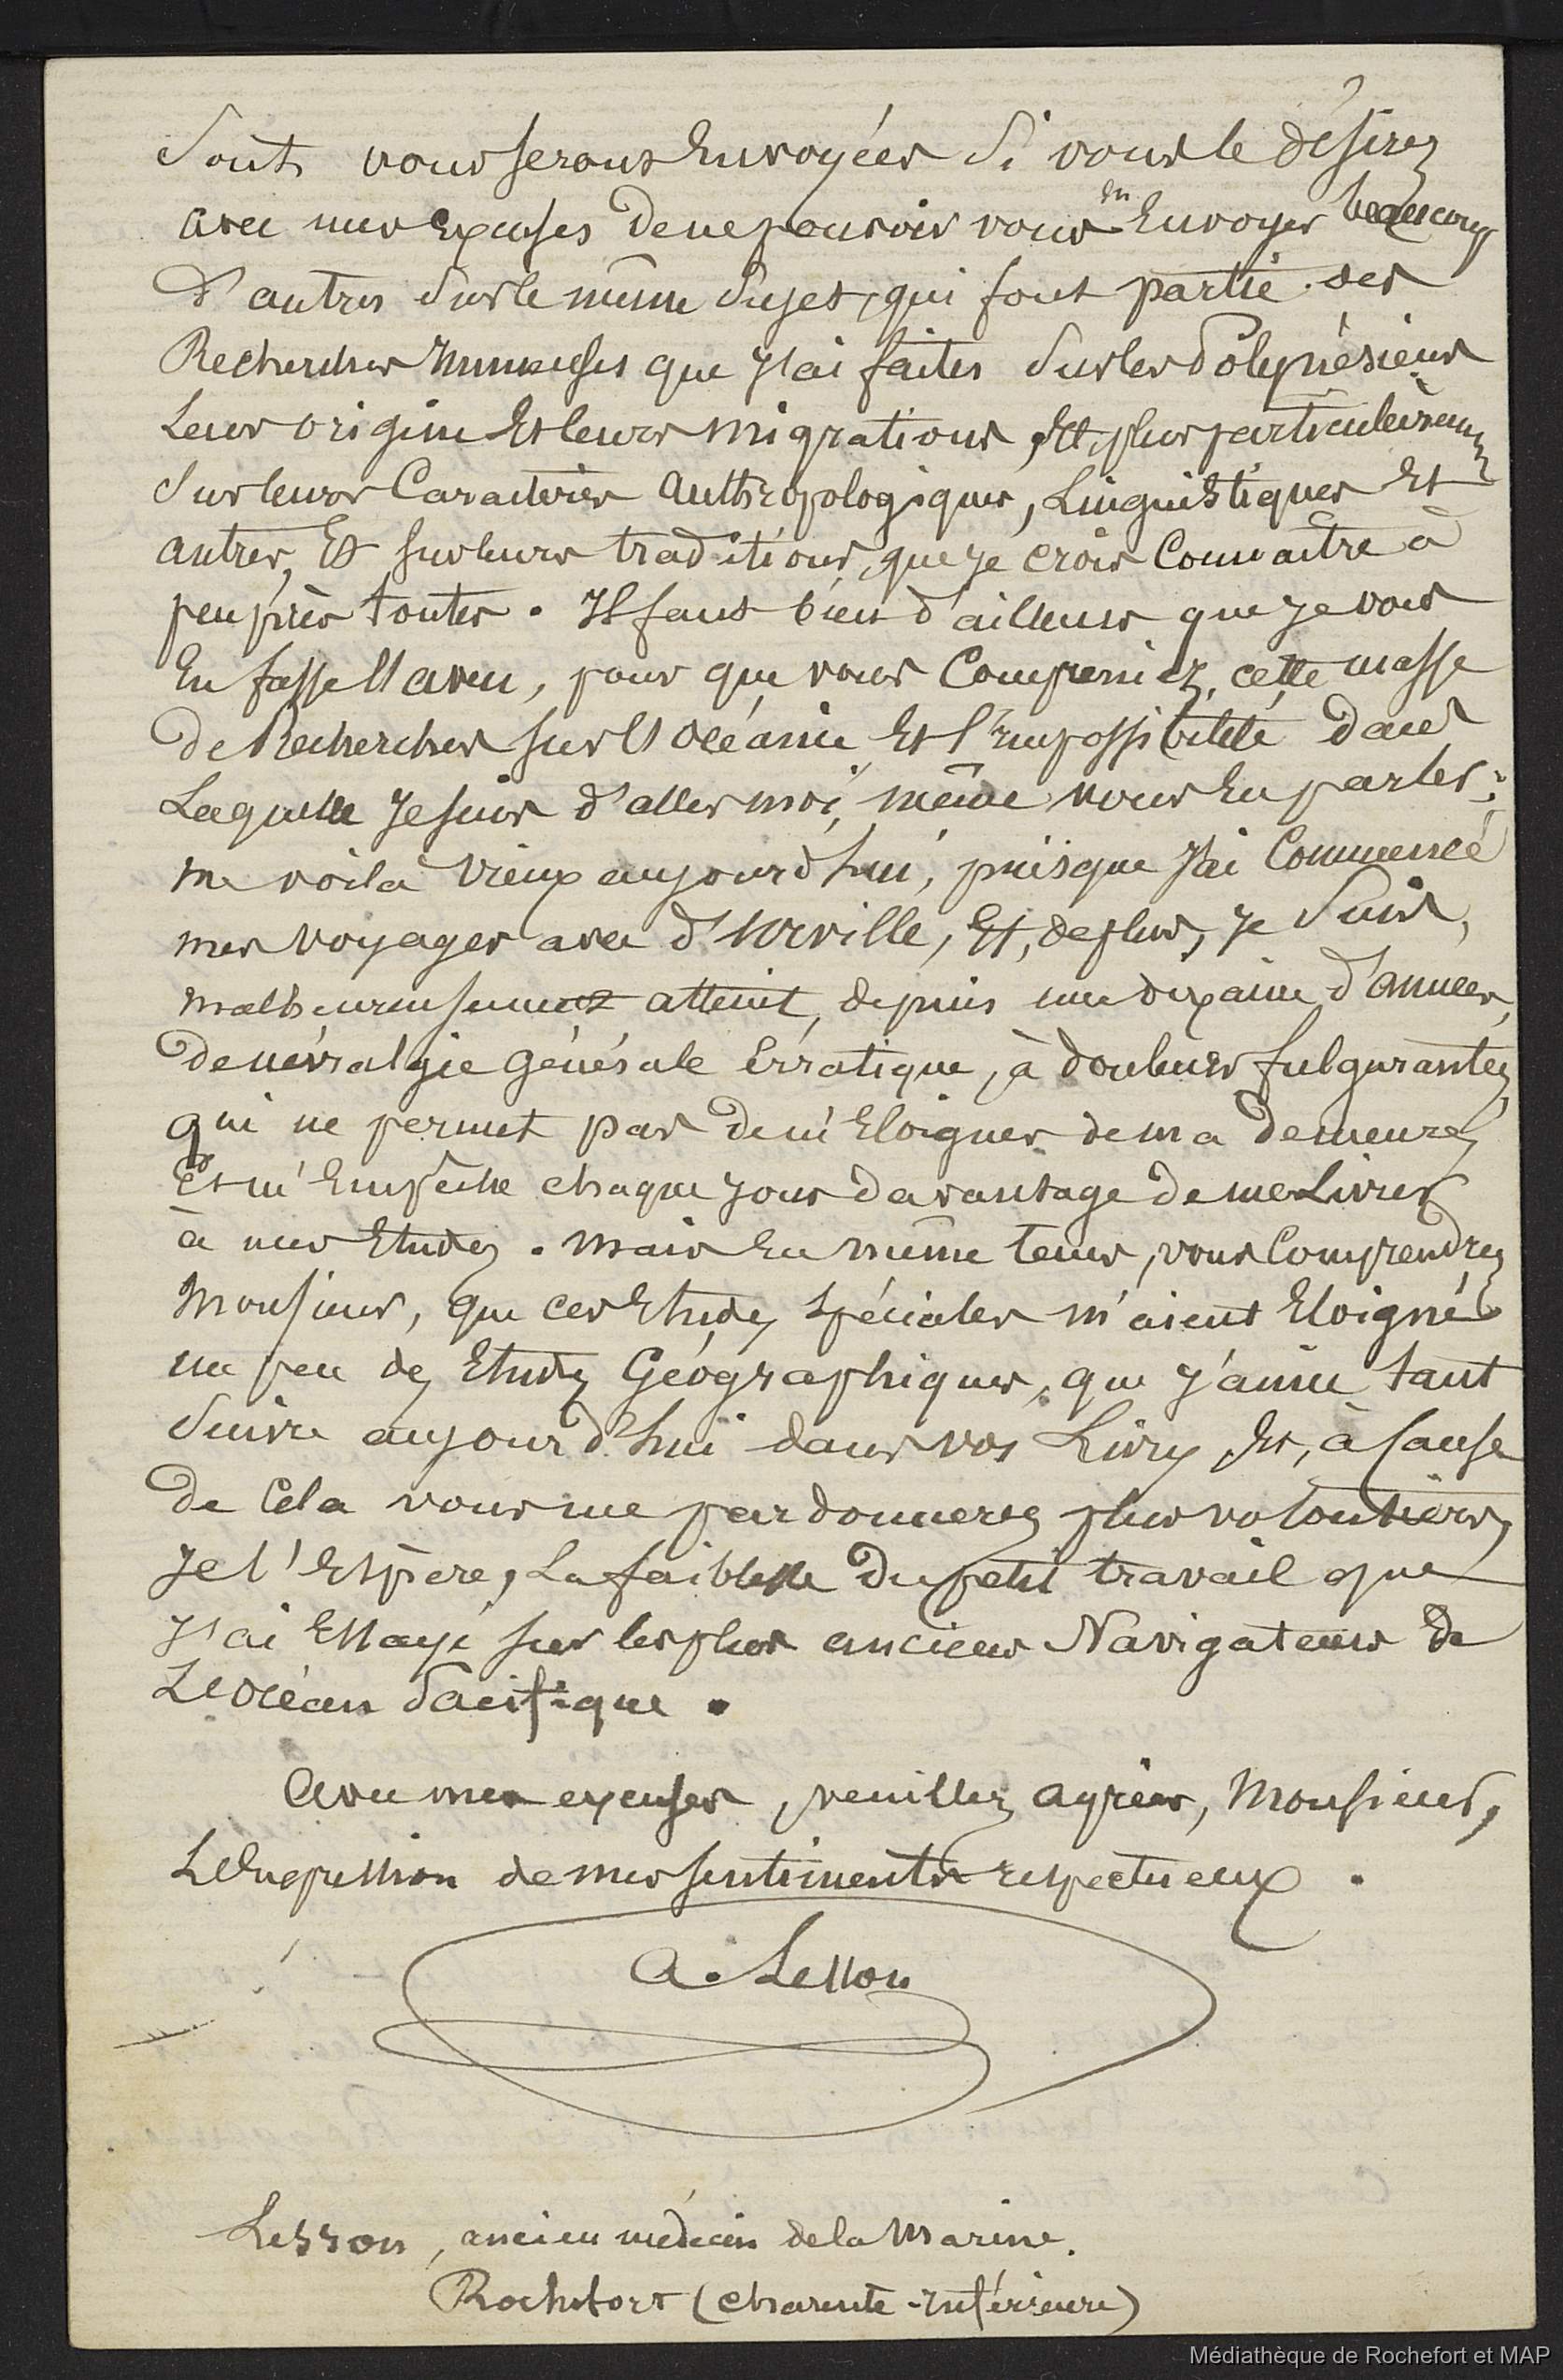 sont, vous serons Envoyées si vous le désirez
avec mes Excuses de ne pouvoir vous en Envoyer beaucoup
d'autres sur le même sujet, qui font partie des
Recherches immenses que j'ai faites sur les Polynésiens
Leur origine et leurs migrations, et plus particulièrement
sur leurs Caractères anthropologiques, Linguistiques et
autres, Et sur leurs traditions, que je crois Connaître à
peu près toutes. Il faut bien d'ailleurs que je vous
En fasse l'aveu, pour que vous Compreniez, cette masse
de Recherches sur l'océanie et l'impossibilité dans
Laquelle je suis d'aller moi, même vous En parler:
me voilà vieux aujourd'hui, puisque j'ai Commencé
mes voyages avec d'urville, Et, de plus, je suis,
malheureusement atteint, depuis une dixaine d'années,
de névralgie générale Erratique, à douleurs fulgurantes,
qui ne permet pas de m'Eloigner de ma demeure,
Et m'Empêche chaque jour davantage de me Livrer
à mes Etudes. mais En même tems, vous Comprendrez
Monsieur, que ces Etudes spéciales m'aient Eloigné
un peu des Etudes Géographiques, que j'aime tant
suivre aujourd'hui dans vos Livres et, à Cause
de Cela vous me pardonnerez plus volontiers,
je l'Espère, La faiblesse du petit travail que
j'ai Essayé sur les plus anciens Navigateurs de
L'océan Pacifique.
Avec mes excuses, veuillez agréer, Monsieur,
L'Expression de mes sentiments respectueux.
A. Lesson
Lesson, ancien médecin de la Marine.
Rochefort (Charente-inférieure)
Médiathèque de Rochefort et MAP